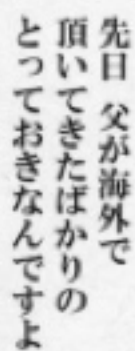 先日 父が海外で
頂いてきたばかりの
とっておきなんですよ